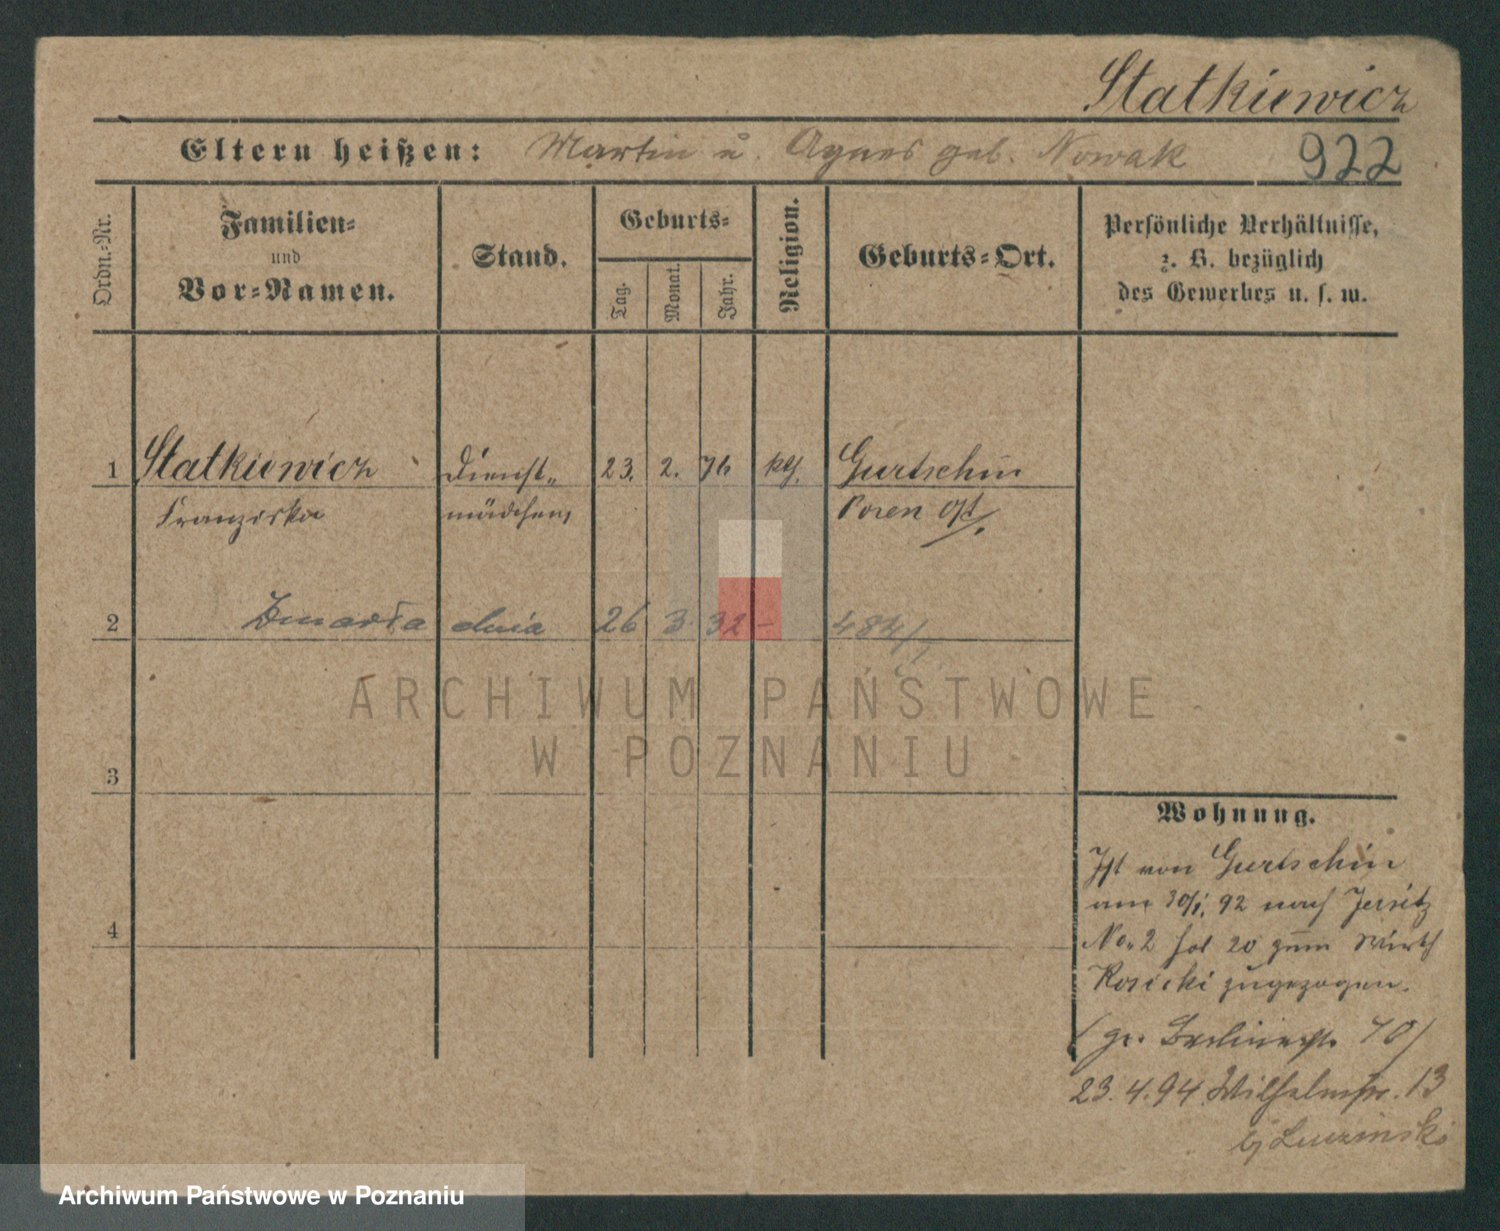 Statkiewicz
Eltern heißen: Martin u. Agnes geb. Nowak 922
Ordn.-Nr.
Familien-
und
Vor-Namen.
Stand.
Geburts-
Tag.
Monat.
Jahr.
Religion.
Geburts-Ort.
Persönliche Verhältnisse,
z. B. bezüglich
des Gewerbes u. s. w.
1 Statkiewicz Dienst- 23. 2. 76 Gurtschin
Franziska mädchen Posen Ost
2 Zmarła dnia 26 3. 32 - 484/
3
4
Wohnung.
Ist von Gurtschin
am 30/1. 92 nach Jersitz
No. 2 20 zum Wirth
Rosicki zugezogen.
(gr. Berlinerstr. 70)
23. 4. 94 Wilhelmstr. 13
ARCHIWUM PAŃSTWOWE
W POZNANIU
Archiwum Państwowe w Poznaniu